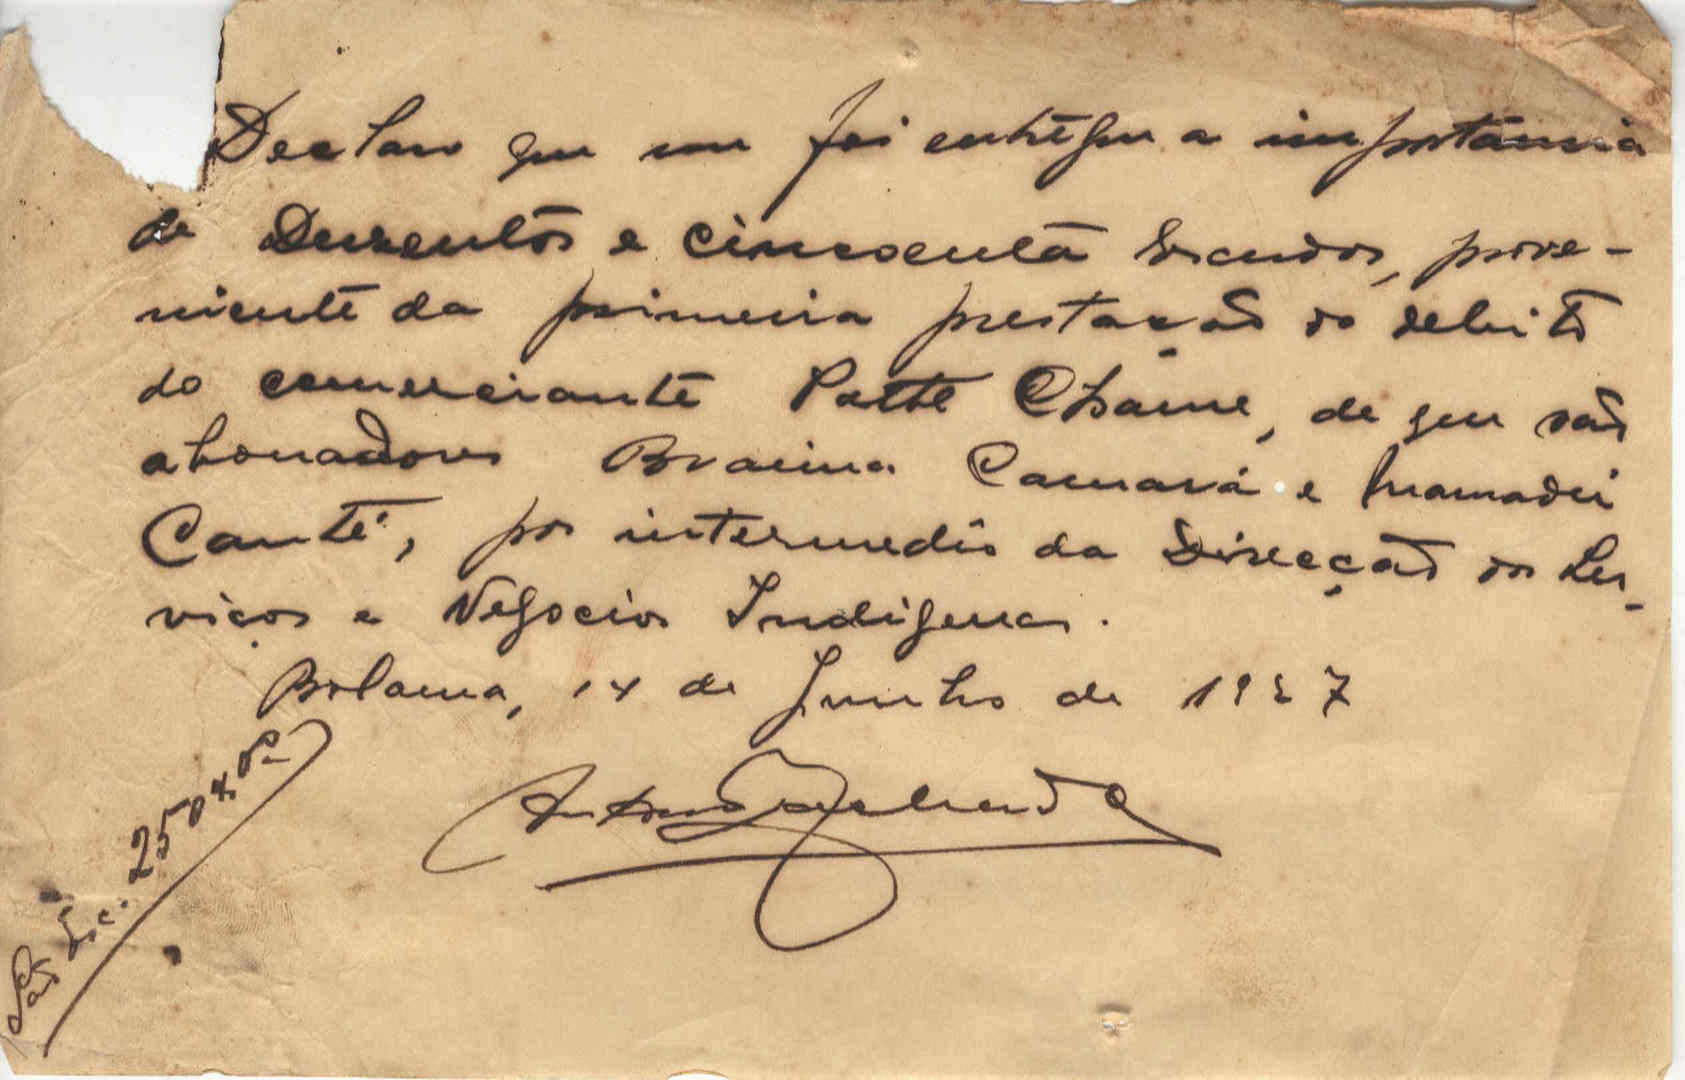 Declaro que me foi entregue a importância
de Duzentos e cincoenta Escudos, prove-
niente da primeira prestação do debito
do comerciante Patte Chame, de que são
abonadores Braima Camará e Mamadú
Canté, por intermedio da Direcção dos Ser-
viços e Negocios Indigenas.
Bolama, 14 de Junho de 1927
Antonio
São Esc. 250$00